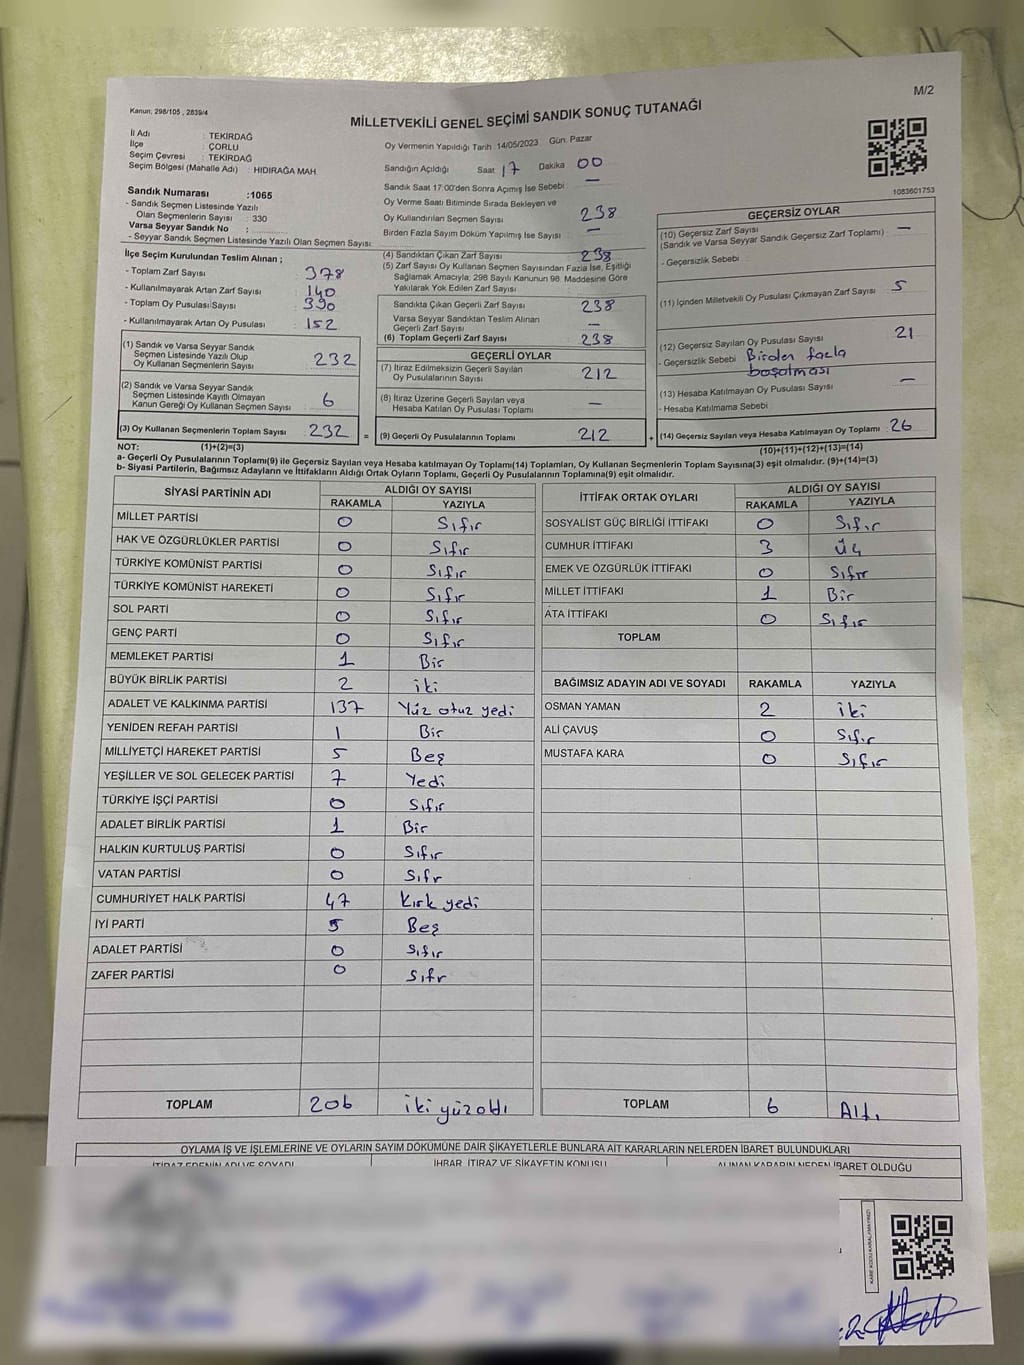 M/2
Kanun; 298/105 , 2839/4
MİLLETVEKİLİ GENEL SEÇİMİ SANDIK SONUÇ TUTANAĞI
İl Adı : TEKİRDAĞ
İlçe : ÇORLU
Seçim Çevresi : TEKİRDAĞ
Seçim Bölgesi (Mahalle Adı) : HIDIRAĞA MAH.
Sandık Numarası :1065
- Sandık Seçmen Listesinde Yazılı
Olan Seçmenlerin Sayısı : 330
Varsa Seyyar Sandık No :
- Seyyar Sandık Seçmen Listesinde Yazılı Olan Seçmen Sayısı:
Oy Vermenin Yapıldığı Tarih :14/05/2023 Gün: Pazar
Sandığın Açıldığı Saat 17 Dakika 00
Sandık Saat 17:00'den Sonra Açımış İse Sebebi : —
Oy Verme Saati Bitiminde Sırada Bekleyen ve
Oy Kullandırılan Seçmen Sayısı 238
Birden Fazla Sayım Döküm Yapılmış İse Sayısı : —
1083601753
İlçe Seçim Kurulundan Teslim Alınan ;
- Toplam Zarf Sayısı : 378
- Kullanılmayarak Artan Zarf Sayısı : 140
- Toplam Oy Pusulası Sayısı : 390
- Kullanılmayarak Artan Oy Pusulası : 152
(1) Sandık ve Varsa Seyyar Sandık
Seçmen Listesinde Yazılı Olup
Oy Kullanan Seçmenlerin Sayısı : 232
(2) Sandık ve Varsa Seyyar Sandık
Seçmen Listesinde Kayıtlı Olmayan
Kanun Gereği Oy Kullanan Seçmen Sayısı : 6
(3) Oy Kullanan Seçmenlerin Toplam Sayısı : 232
(4) Sandıktan Çıkan Zarf Sayısı : 238
(5) Zarf Sayısı Oy Kullanan Seçmen Sayısından Fazla İse, Eşitliği
Sağlamak Amacıyla; 298 Sayılı Kanunun 98. Maddesine Göre
Yakılarak Yok Edilen Zarf Sayısı :
Sandıkta Çıkan Geçerli Zarf Sayısı : 238
Varsa Seyyar Sandıktan Teslim Alınan
Geçerli Zarf Sayısı : —
(6) Toplam Geçerli Zarf Sayısı : 238
GEÇERLİ OYLAR
(7) İtiraz Edilmeksizin Geçerli Sayılan
Oy Pusulalarının Sayısı : 212
(8) İtiraz Üzerine Geçerli Sayılan veya
Hesaba Katılan Oy Pusulası Toplamı : —
= (9) Geçerli Oy Pusulalarının Toplamı : 212
GEÇERSİZ OYLAR
(10) Geçersiz Zarf Sayısı : —
(Sandık ve Varsa Seyyar Sandık Geçersiz Zarf Toplamı)
- Geçersizlik Sebebi :
(11) İçinden Milletvekili Oy Pusulası Çıkmayan Zarf Sayısı : 5
(12) Geçersiz Sayılan Oy Pusulası Sayısı : 21
- Geçersizlik Sebebi : Birden fazla
basılması
(13) Hesaba Katılmayan Oy Pusulası Sayısı : —
- Hesaba Katılmama Sebebi :
+ (14) Geçersiz Sayılan veya Hesaba Katılmayan Oy Toplamı : 26
NOT: (1)+(2)=(3)
(10)+(11)+(12)+(13)=(14)
a- Geçerli Oy Pusulalarının Toplamı(9) ile Geçersiz Sayılan veya Hesaba katılmayan Oy Toplamı(14) Toplamları, Oy Kullanan Seçmenlerin Toplam Sayısına(3) eşit olmalıdır. (9)+(14)=(3)
b- Siyasi Partilerin, Bağımsız Adayların ve İttifakların Aldığı Ortak Oyların Toplamı, Geçerli Oy Pusulalarının Toplamına(9) eşit olmalıdır.
SİYASİ PARTİNİN ADI ALDIĞI OY SAYISI
RAKAMLA YAZIYLA
MİLLET PARTİSİ 0 Sıfır
HAK VE ÖZGÜRLÜKLER PARTİSİ 0 Sıfır
TÜRKİYE KOMÜNİST PARTİSİ 0 Sıfır
TÜRKİYE KOMÜNİST HAREKETİ 0 Sıfır
SOL PARTİ 0 Sıfır
GENÇ PARTİ 0 Sıfır
MEMLEKET PARTİSİ 1 Bir
BÜYÜK BİRLİK PARTİSİ 2 iki
ADALET VE KALKINMA PARTİSİ 137 Yüz otuz yedi
YENİDEN REFAH PARTİSİ 1 Bir
MİLLİYETÇİ HAREKET PARTİSİ 5 Beş
YEŞİLLER VE SOL GELECEK PARTİSİ 7 Yedi
TÜRKİYE İŞÇİ PARTİSİ 0 Sıfır
ADALET BİRLİK PARTİSİ 1 Bir
HALKIN KURTULUŞ PARTİSİ 0 Sıfır
VATAN PARTİSİ 0 Sıfr
CUMHURİYET HALK PARTİSİ 47 Kırk yedi
İYİ PARTİ 5 Beş
ADALET PARTİSİ 0 Sıfır
ZAFER PARTİSİ 0 Sıfr
TOPLAM 206 iki yüz altı
İTTİFAK ORTAK OYLARI ALDIĞI OY SAYISI
RAKAMLA YAZIYLA
SOSYALİST GÜÇ BİRLİĞİ İTTİFAKI 0 Sıfır
CUMHUR İTTİFAKI 3 Üç
EMEK VE ÖZGÜRLÜK İTTİFAKI 0 Sıfır
MİLLET İTTİFAKI 1 Bir
ATA İTTİFAKI 0 Sıfır
TOPLAM
BAĞIMSIZ ADAYIN ADI VE SOYADI RAKAMLA YAZIYLA
OSMAN YAMAN 2 iki
ALİ ÇAVUŞ 0 Sıfır
MUSTAFA KARA 0 Sıfır
TOPLAM 6 Altı
OYLAMA İŞ VE İŞLEMLERİNE VE OYLARIN SAYIM DÖKÜMÜNE DAİR ŞİKAYETLERLE BUNLARA AİT KARARLARIN NELERDEN İBARET BULUNDUKLARI
İTİRAZ EDENİN ADI VE SOYADI İHBAR, İTİRAZ VE ŞİKAYETİN KONUSU ALINAN KARARIN NEDEN İBARET OLDUĞU